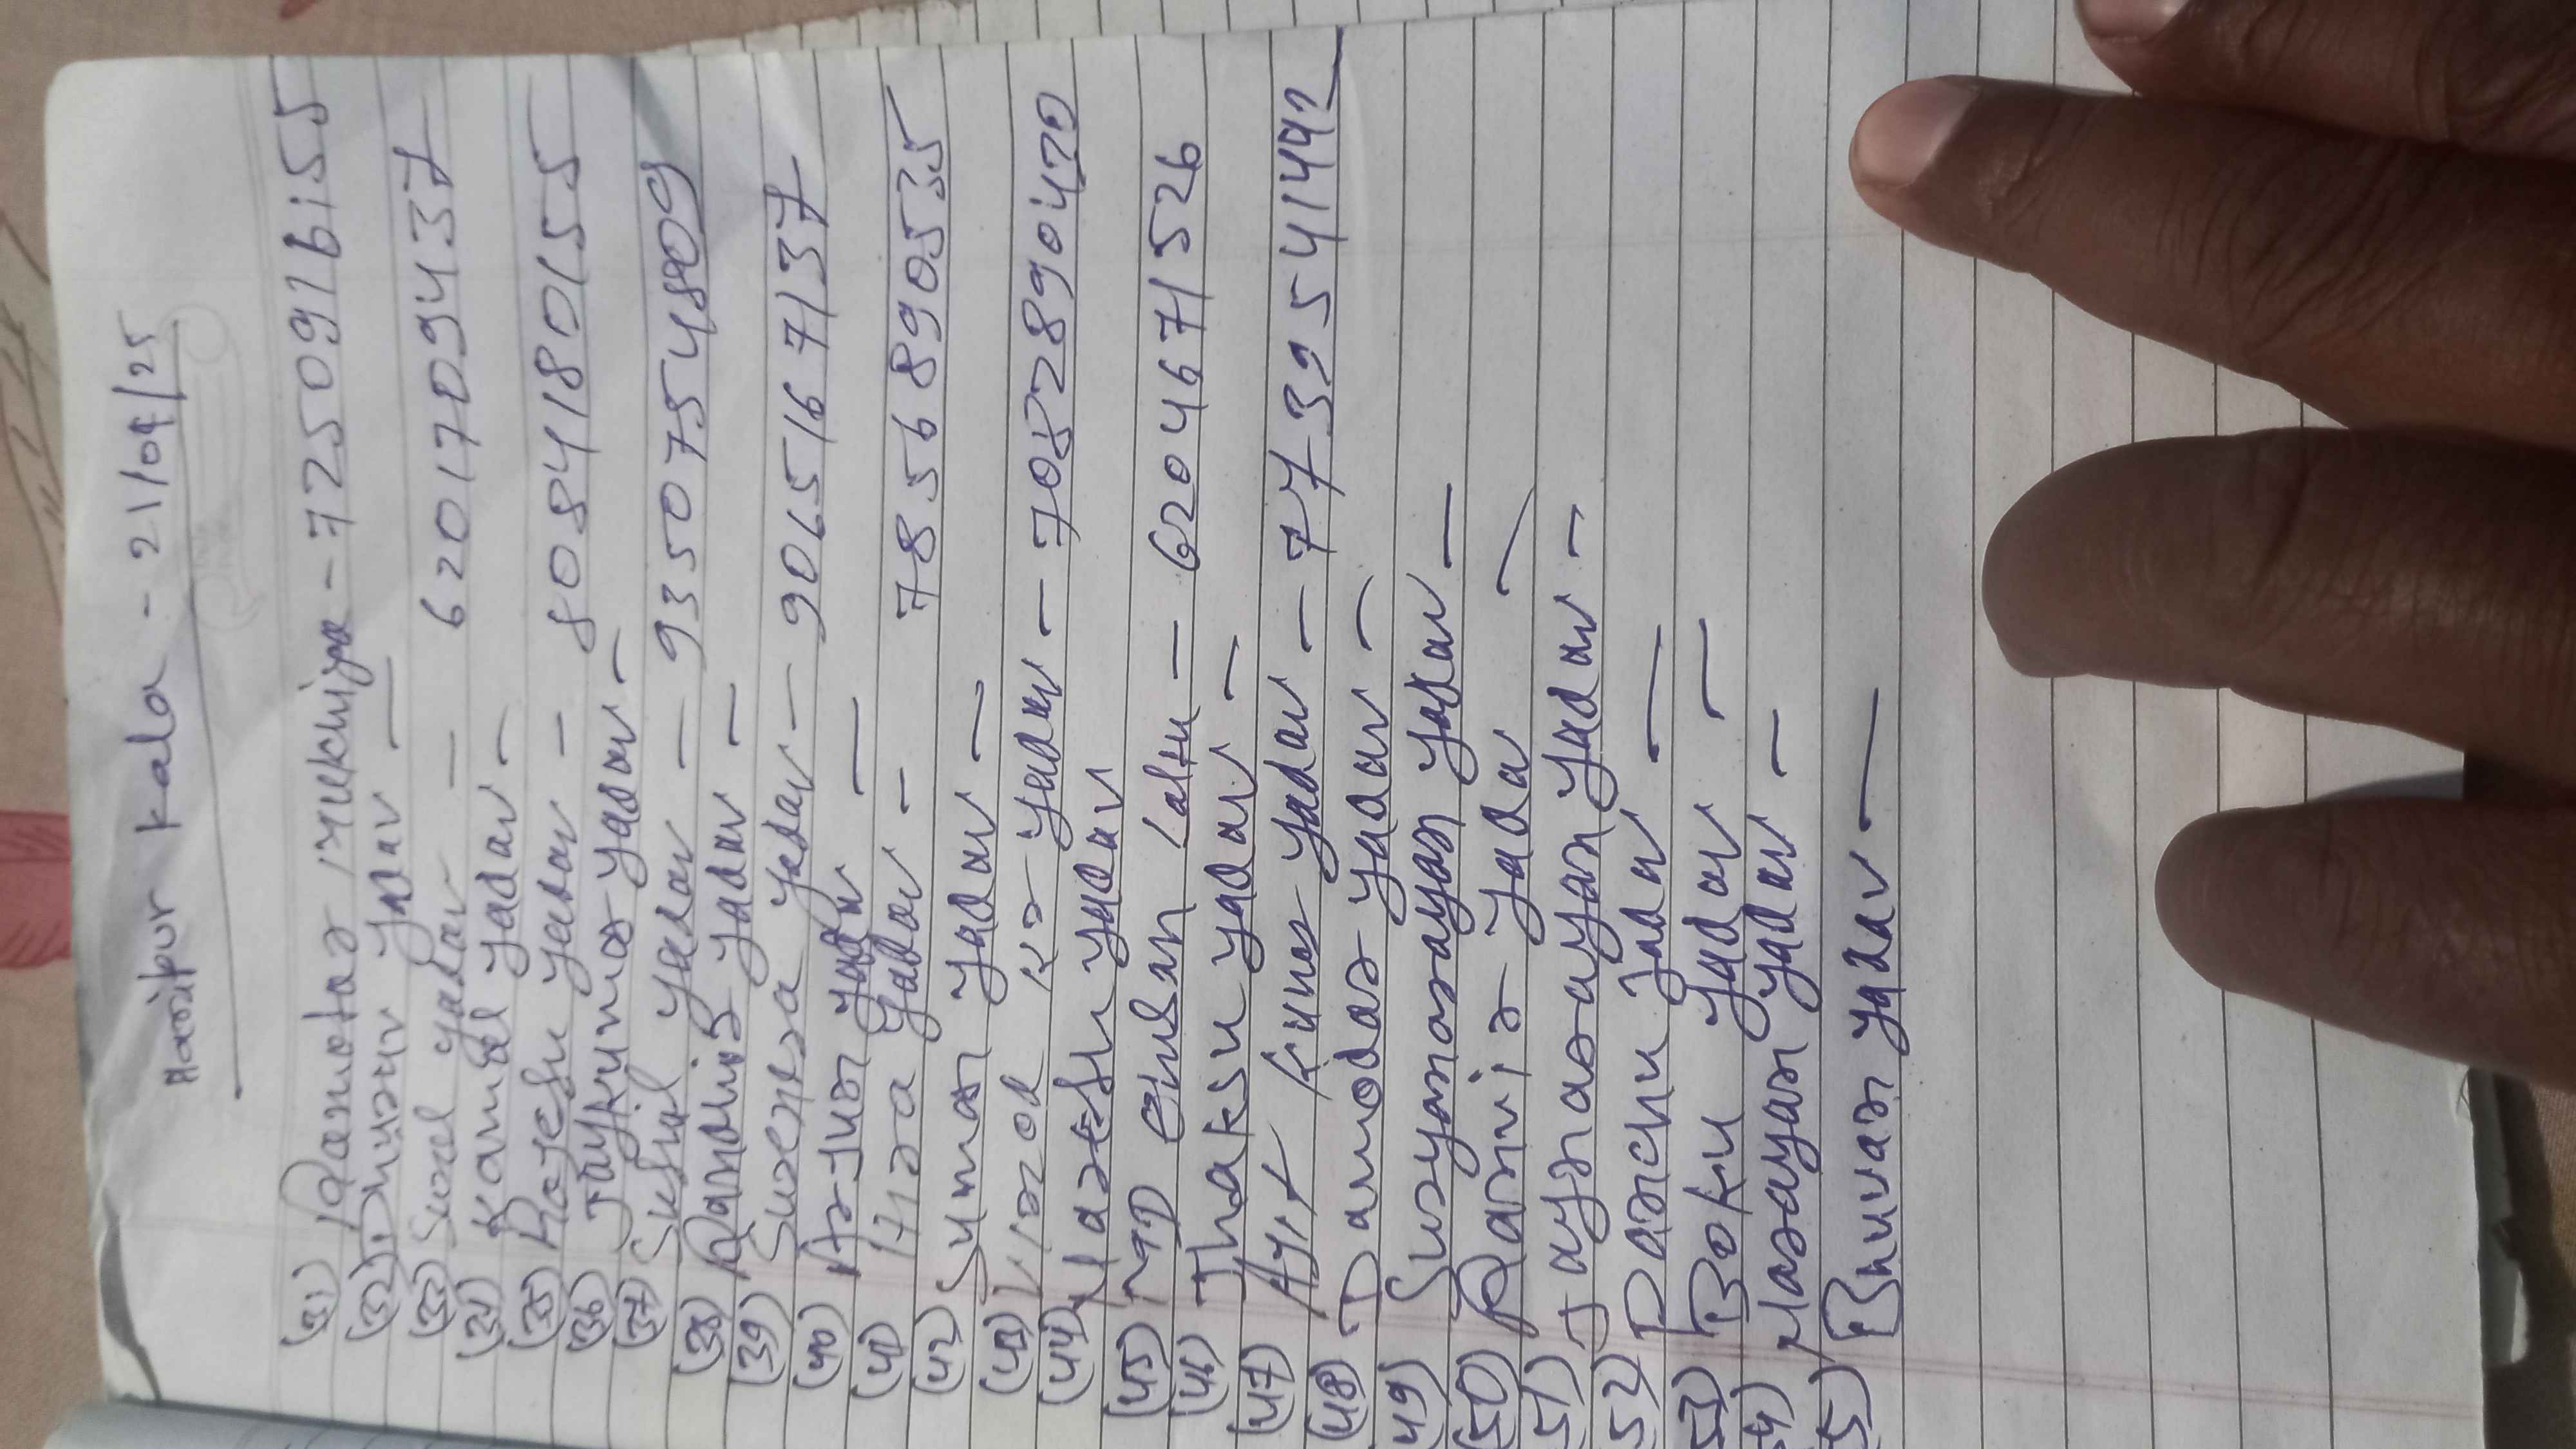 Haripur kala - 21/09/25
(31) Ramotar mukhiya - 7250916155
(32) Dhuran Yadav —
(33) Surel yadav — 6201709437
(34) Kamdel yadav —
(35) Rajesh yadav — 8084180155
(36) Jaykumar yadav —
(37) Sushil yadav — 9350754809
(38) Ramdhib yadav —
(39) Surendra yadav — 9065167137
(40) Arjun yadav —
(41) Hira yadav — 7856890535
(42) Suman yadav —
(43) Vinod Kr yadav — 7082890470
(44) Naresh yadav
(45) MD Lalsu — 6204671526
(46) Thaksu yadav —
(47) Ajit Kumar yadav — 7739541492
(48) Damodar yadav —
49) Suryanarayan yadav —
(50) Ranvir yada —
51) Jaynarayan yadav —
52) Panchu yadav —
53) Boku yadav —
54) Narayan yadav —
5) Bhuvan yadav —